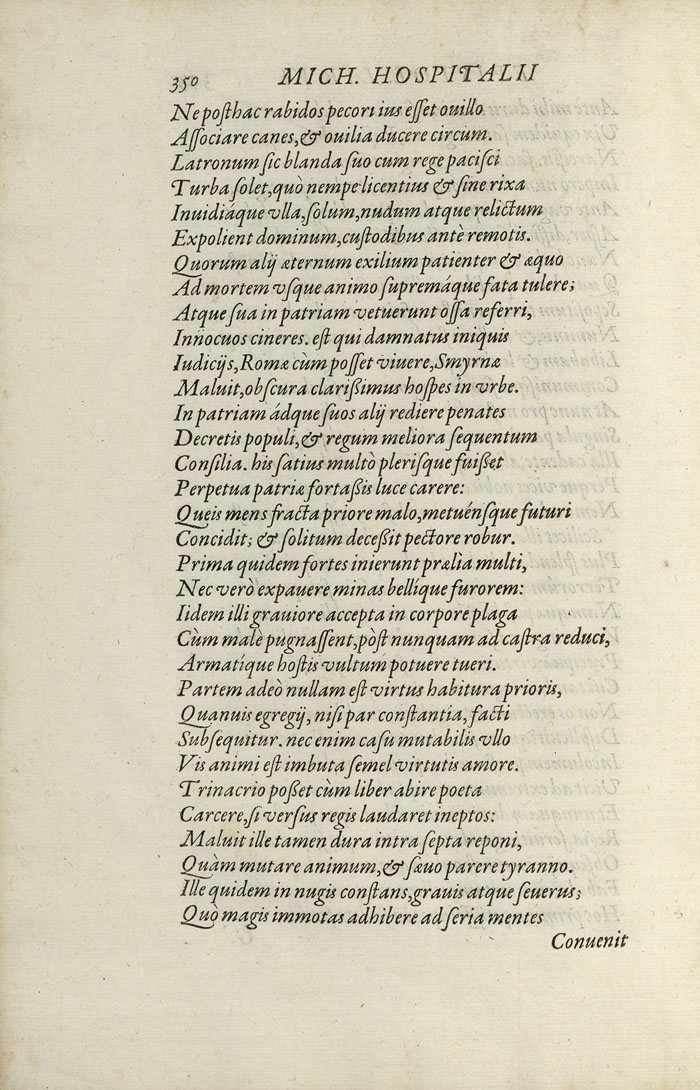 350 MICH. HOSPITALII
Ne posthac rabidos pecori ius esset ouillo
Associare canes, & ouilia ducere circum.
Latronum sic blanda suo cum rege pacisci
Turba solet, quò nempe licentius & sine rixa
Inuidiáque vlla, solum, nudum atque relictum
Expolient dominum, custodibus antè remotis.
Quorum alij æternum exilium patienter & æquo
Ad mortem vsque animo supremáque fata tulere;
Atque sua in patriam vetuerunt ossa referri,
Innocuos cineres. est qui damnatus iniquis
Iudicijs, Romæ cùm posset viuere, Smyrnæ
Maluit, obscura clarißimus hospes in vrbe.
In patriam ádque suos alij rediere penates
Decretis populi, & regum meliora sequentum
Consilia. his satius multò plerisque fuißet
Perpetua patriæ fortaßis luce carere:
Queis mens fracta priore malo, metuénsque futuri
Concidit; & solitum deceßit pectore robur.
Prima quidem fortes inierunt prælia multi,
Nec verò expauere minas bellique furorem:
Iidem illi grauiore accepta in corpore plaga
Cùm malè pugnassent, pòst nunquam ad castra reduci,
Armatíque hostis vultum potuere tueri.
Partem adeò nullam est virtus habitura prioris,
Quanuis egregij, nisi par constantia, facti
Subsequitur. nec enim casu mutabilis vllo
Vis animi est imbuta semel virtutis amore.
Trinacrio poßet cùm liber abire poeta
Carcere, si versus regis laudaret ineptos:
Maluit ille tamen dura intra septa reponi,
Quàm mutare animum, & sæuo parere tyranno.
Ille quidem in nugis constans, grauis atque seuerus;
Quò magis immotas adhibere ad seria mentes
Conuenit